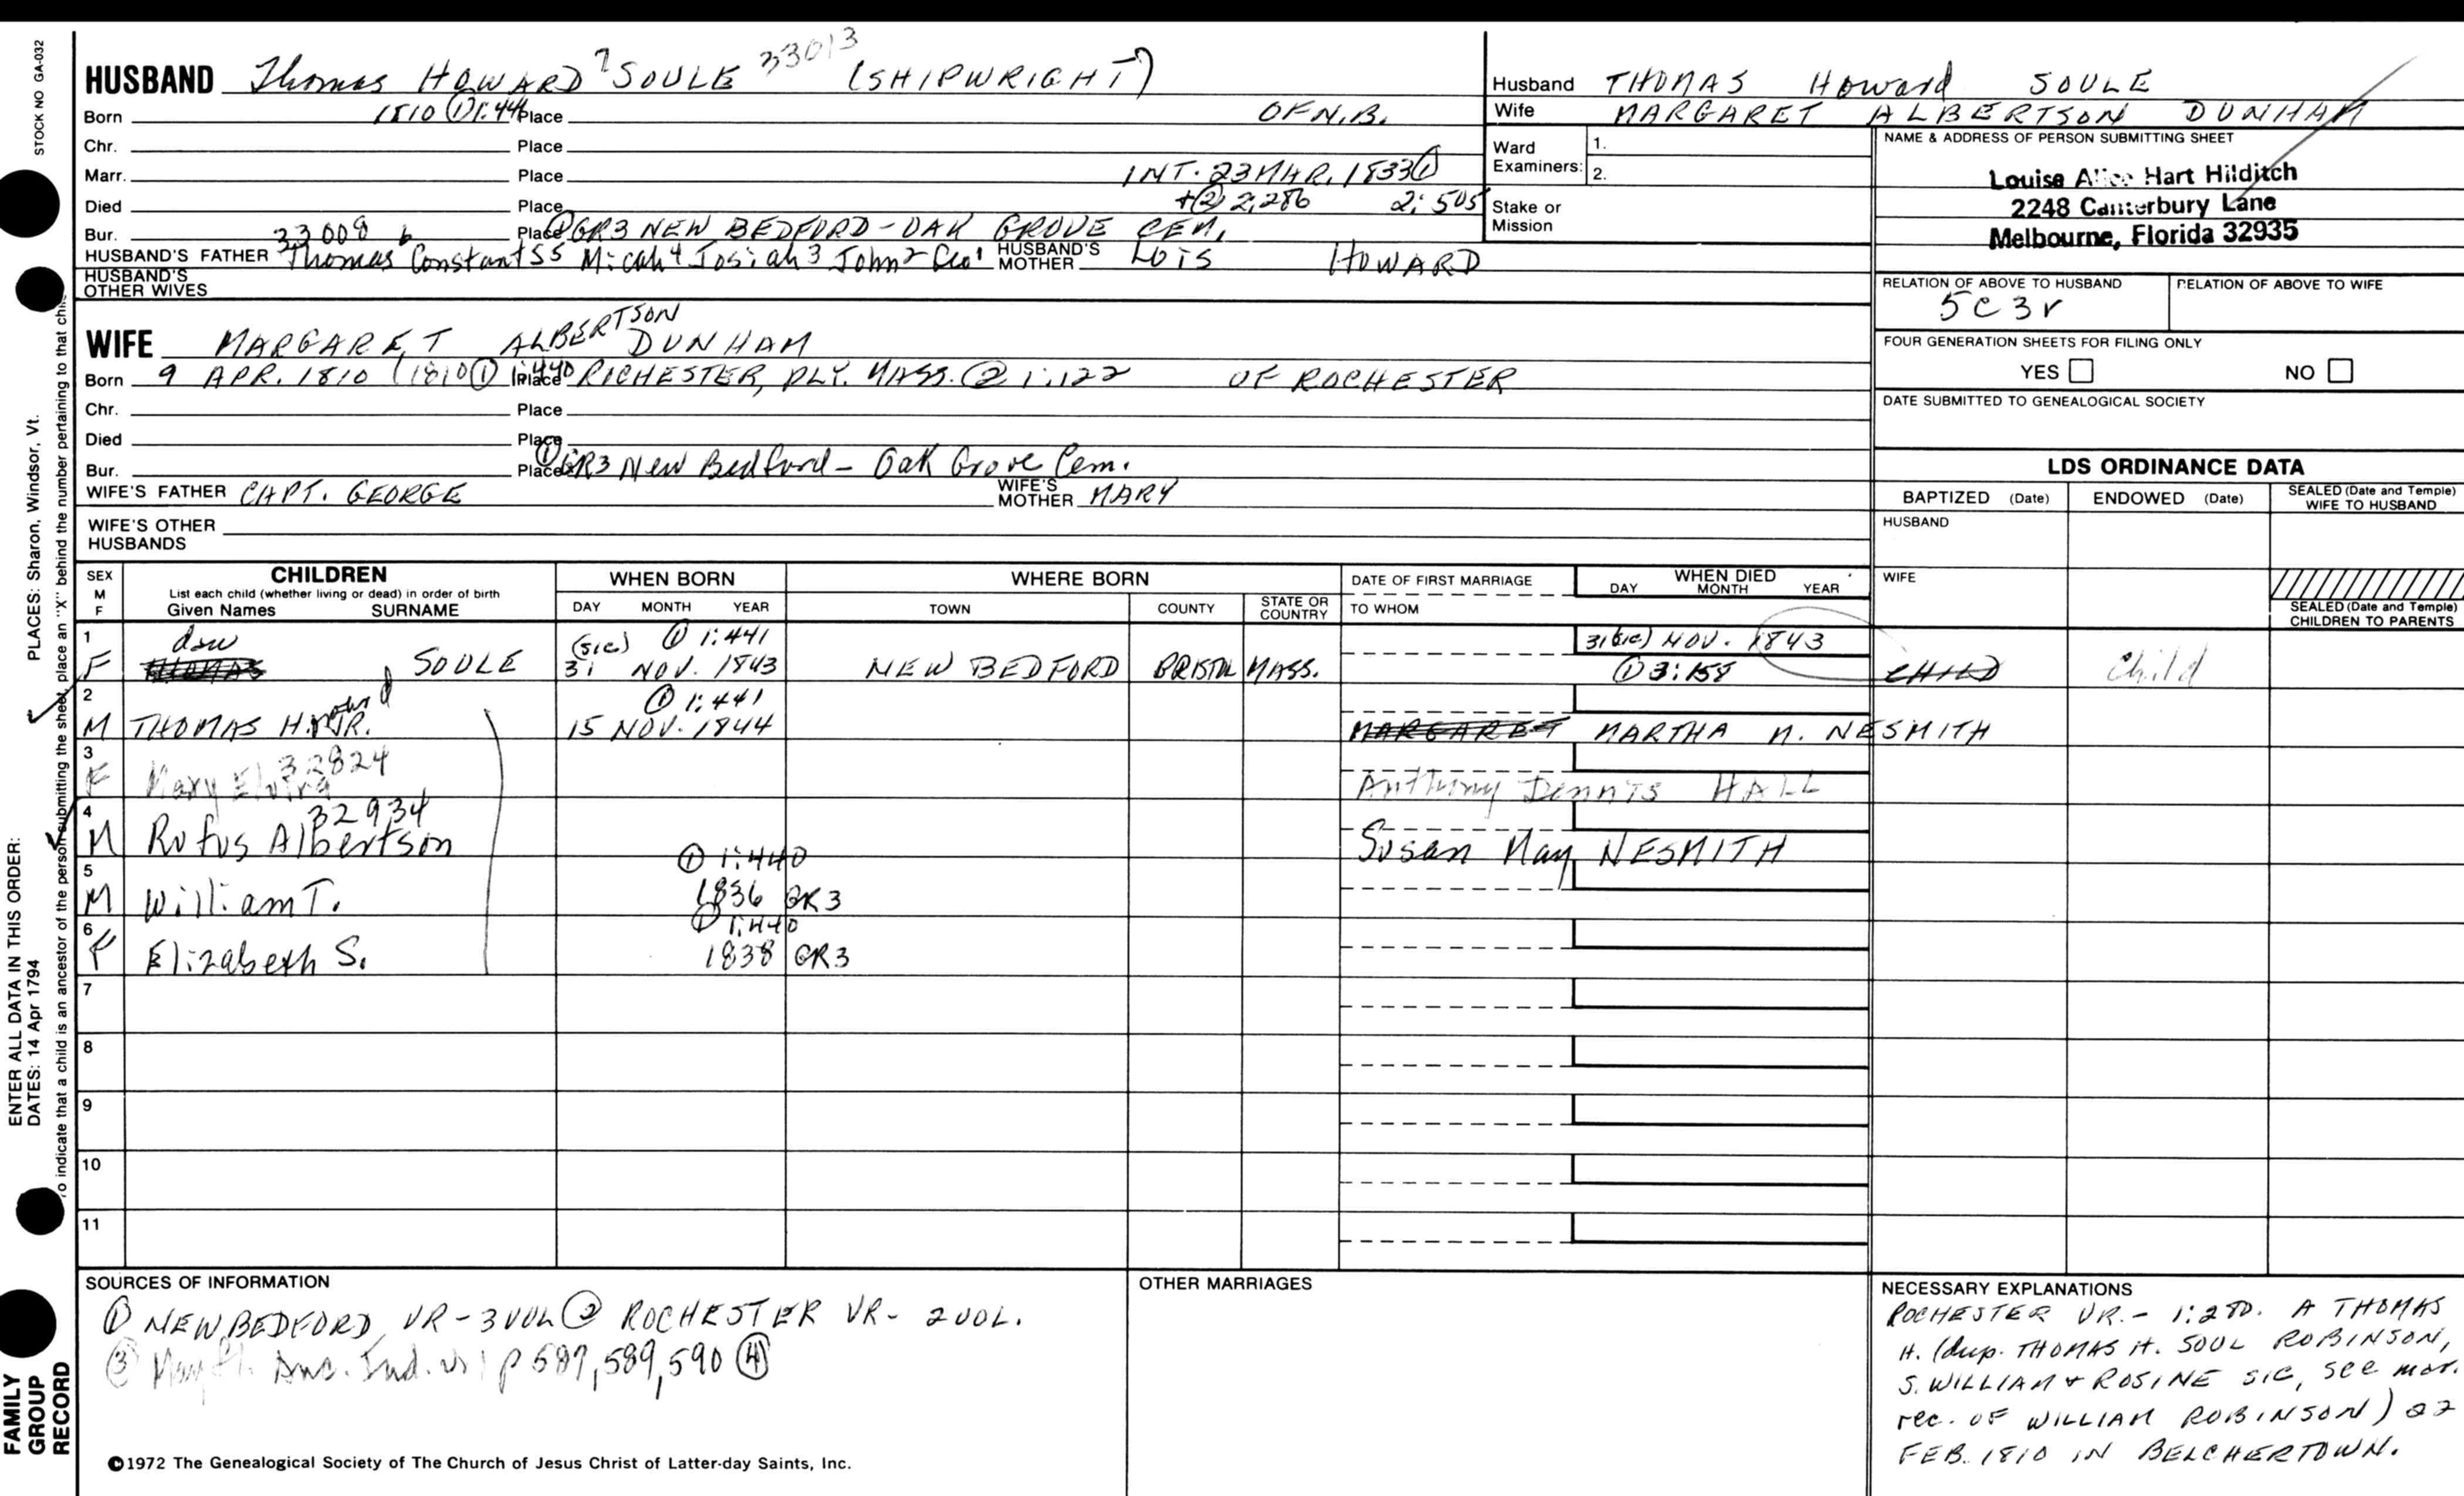 STOCK NO GA-032
PLACES: Sharon, Windsor, Vt.
ENTER ALL DATA IN THIS ORDER:
DATES: 14 Apr 1794
To indicate that a child is an ancestor of the person submitting the sheet, place an "X" behind the number pertaining to that
FAMILY GROUP RECORD
HUSBAND Thomas HOWARD 7 SOULE 33013 (SHIPWRIGHT)
Born 1810 ① 1:441 Place OF N.B.
Chr. Place
Marr. Place INT. 23 MAR. 1833 ①
Died Place + ② 2,286 2:505
Bur. Place ① GR3 NEW BEDFORD - OAK GROVE CEM.
33008 b
HUSBAND'S FATHER Thomas Constant SS Micah 4 Josiah 3 John 2 Geo 1 HUSBAND'S MOTHER LOIS HOWARD
HUSBAND'S OTHER WIVES
WIFE MARGARET ALBERTSON DUNHAM
Born 9 APR. 1810 (1810 ① 1:440 Place RICHESTER, PLY. MASS. ② 1:122 OF ROCHESTER
Chr. Place
Died Place
Bur. Place ① GR3 New Bedford - Oak Grove Cem.
WIFE'S FATHER CAPT. GEORGE WIFE'S MOTHER MARY
WIFE'S OTHER HUSBANDS
Husband THOMAS Howard SOULE
Wife MARGARET ALBERTSON DUNHAM
Ward Examiners: 1.
2.
Stake or Mission
NAME & ADDRESS OF PERSON SUBMITTING SHEET
Louise Alice Hart Hilditch
2248 Canterbury Lane
Melbourne, Florida 32935
RELATION OF ABOVE TO HUSBAND RELATION OF ABOVE TO WIFE
5C3r
FOUR GENERATION SHEETS FOR FILING ONLY
YES NO
DATE SUBMITTED TO GENEALOGICAL SOCIETY
LDS ORDINANCE DATA
BAPTIZED (Date) ENDOWED (Date) SEALED (Date and Temple) WIFE TO HUSBAND
HUSBAND
WIFE
SEALED (Date and Temple) CHILDREN TO PARENTS
SEX M F
CHILDREN
List each child (whether living or dead) in order of birth
Given Names SURNAME
WHEN BORN
DAY MONTH YEAR
WHERE BORN
TOWN COUNTY STATE OR COUNTRY
DATE OF FIRST MARRIAGE
TO WHOM
WHEN DIED
DAY MONTH YEAR
1 dau (sic) ① 1:441 31 (sic) NOV. 1843
F THOMAS SOULE 31 NOV. 1843 NEW BEDFORD BRISTOL MASS. ① 3:158 CHILD Child
2 ① 1:441
M THOMAS Howard JR. 15 NOV. 1844 MARGARET MARTHA M. NESMITH
3 32824
F Mary Elvira Anthony Dennis HALL
4 32934
M Rufus Albertson Susan May NESMITH
5 ① 1:440
M William T. 1836 GR3
6 ① 1:440
F Elizabeth S. 1838 GR3
7
8
9
10
11
SOURCES OF INFORMATION
① NEW BEDFORD VR - 3 VOL ② ROCHESTER VR - 2 VOL.
③ Mayfl. Anc. Ind. v. 1 p 587, 589, 590 ④
OTHER MARRIAGES
NECESSARY EXPLANATIONS
ROCHESTER VR. - 1:280. A THOMAS
H. (dup. THOMAS H. SOUL ROBINSON,
S. WILLIAM & ROSINE SIC, see mar.
rec. OF WILLIAM ROBINSON) 22
FEB. 1810 IN BELCHERTOWN.
©1972 The Genealogical Society of The Church of Jesus Christ of Latter-day Saints, Inc.